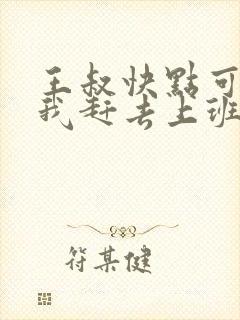 王叔快點可
我赶去上班
符某健